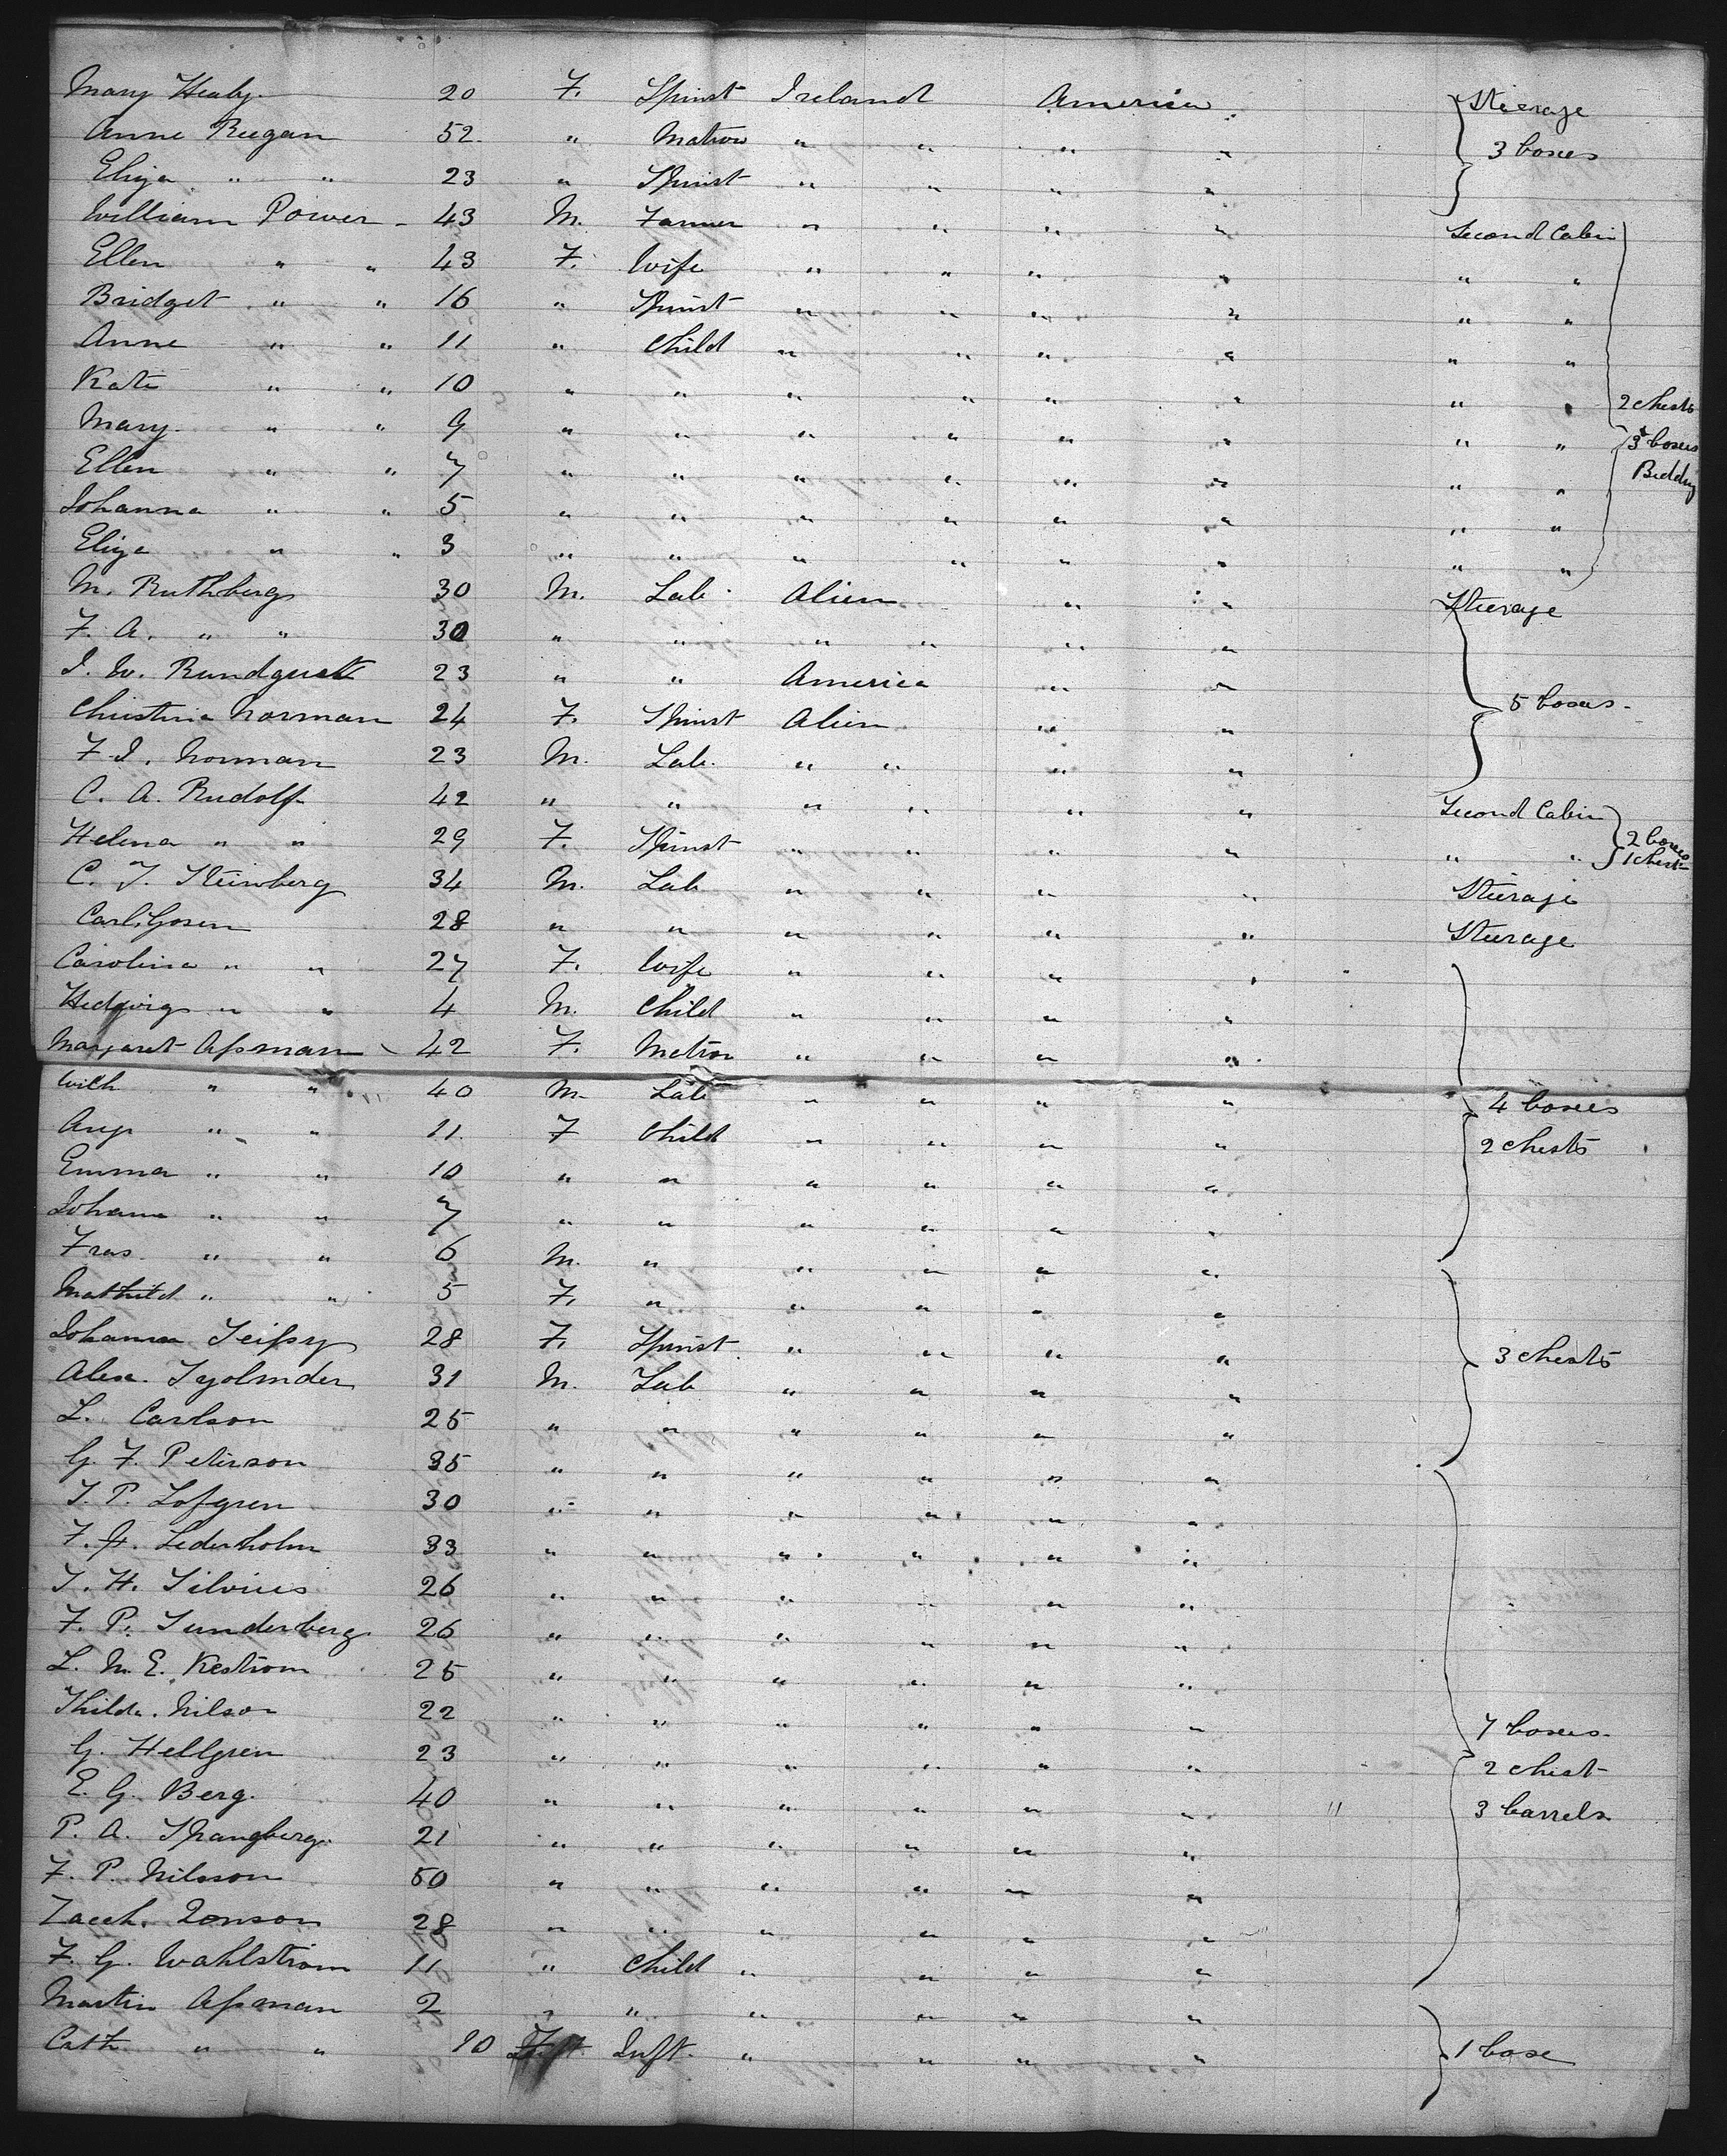 Mary Healy 20 F. Spinst Ireland America Steerage
Anne Reegan 52 " Matron " " " " 3 boxes
Eliza " " 23 " Spinst " " " "
William Power 43 M. Farmer " " " " Second Cabin
Ellen " " 43 F. Wife " " " " " "
Bridget " " 16 " Spinst " " " " " "
Anne " " 11 " Child " " " " " "
Kate " " 10 " " " " " " " " 2 Chests
Mary " " 9 " " " " " " " " 3 boxes
Ellen " " 7 " " " " " " " " Bedding
Johanna " " 5 " " " " " " " "
Eliza " " 3 " " " " " " " "
M. Ruthberg 30 M. Lab. Alien " " Steerage
F. A. " " 30 " " " " " "
J. W. Rundquest 23 " " America " "
Christina Norman 24 F. Spinst Alien " " 5 boxes
F. J. Norman 23 M. Lab. " " " "
C. A. Rudolf 42 " " " " " " Second Cabin
Helena " " 29 F. Spinst " " " " " " 2 boxes 1 Chest
C. J. Steinberg 34 M. Lab " " " " Steerage
Carl 28 " " " " " " Steerage
Carolina " " 27 F. Wife " " " "
Hedgwig " " 4 M. Child " " " "
Margaret Assman 42 F. Matron " " " "
Wilh " " 40 M. Lab " " " " 4 boxes
Aug " " 11 F Child " " " " 2 Chests
Emma " " 10 " " " " " "
Johana " " 7 " " " " " "
Fras " " 6 M. " " " " "
Mathild " " 5 F. " " " " "
Johanna 28 F. Spinst " " " " 3 Chests
Alex. 31 M. Lab " " " "
L. Carlson 25 " " " " " "
G. F. Peterson 35 " " " " " "
J. P. Lofgren 30 " " " " " "
F. A. Lederholm 33 " " " " " "
J. H. Silvius 26 " " " " " "
F. P. Sunderberg 26 " " " " " "
L. M. E. Kestrom 25 " " " " " "
Thilda Nilson 22 " " " " " " 7 boxes
G. Hellgren 23 " " " " " " 2 Chest
E. G. Berg. 40 " " " " " " " 3 barrels
P. A. Spangberg 21 " " " " " "
F. P. Nilsson 50 " " " " " "
Zacch. Jonson 28 " " " " " "
F. G. Wahlstrom 11 " Child " " " "
Martin Assman 2 " " " " " "
Cath " " 10 F Inft. " " " " 1 box